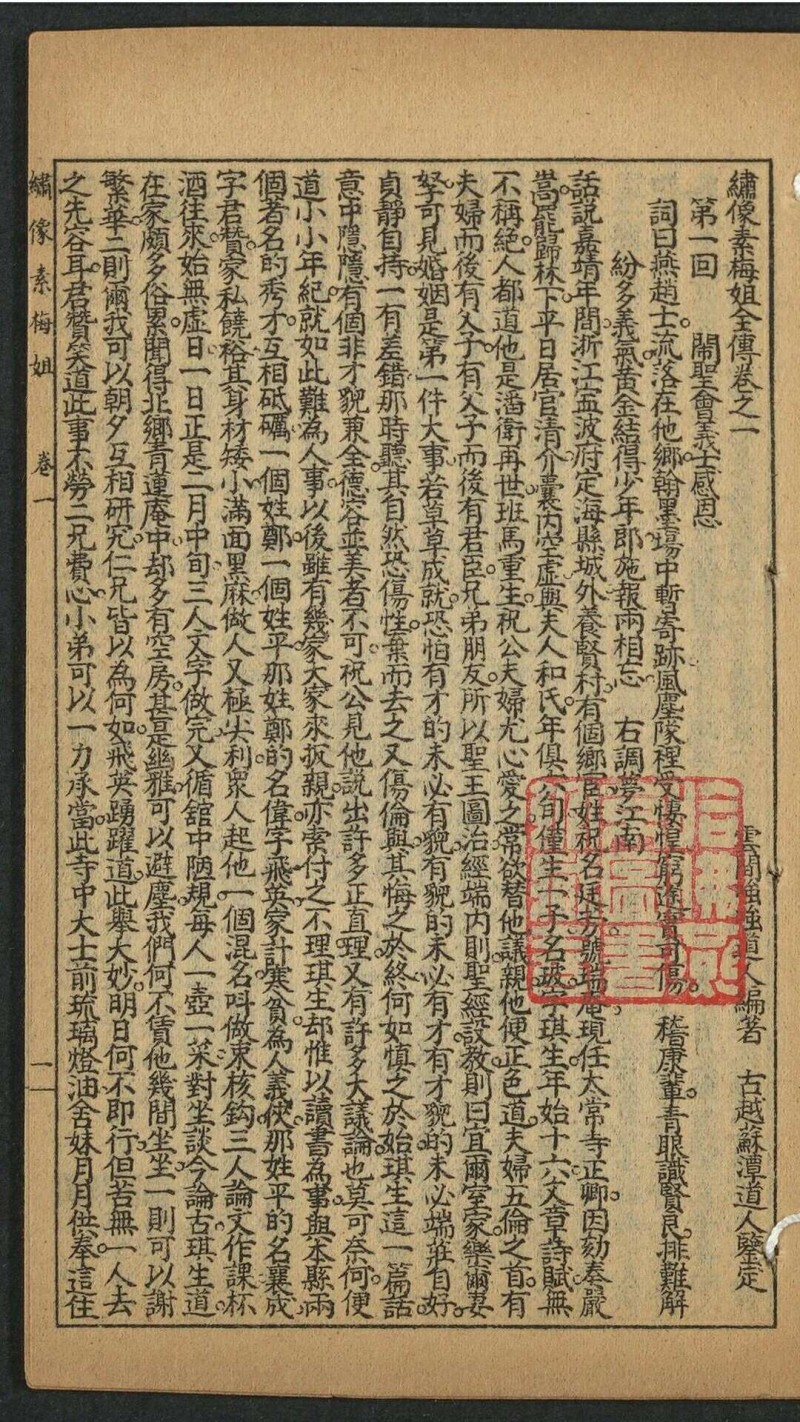 繡像素梅姐全傳卷之一
雲間強強道人編著　古越蘇潭道人鑒定
第一回　閙聖會義士感恩
詞曰燕趙士。流落在他鄉。翰墨塲中暫寄跡。風塵隊裡受悽惶。窮途實可傷。　稽康輩。青眼識賢良。排難解
紛多義氣。黃金結得少年郎。施報兩相忘。　右調夢江南
話說嘉靖年間。浙江寍波府定海縣城外養賢村。有個鄉宦。姓祝名廷芳。號瑞庵。現任太常寺正卿。因劾奏嚴
嵩。罷歸林下。平日居官清介。囊内空虛。與夫人和氏。年俱六旬。僅生一子。名琥。字琪生。年始十六。文章詩賦。無
不稱絕。人都道他是潘衛再世。班馬重生。祝公夫婦尤心愛之。常欲替他議親。他便正色道。夫婦五倫之首。有
夫婦而後有父子。有父子而後有君臣。兄弟朋友。所以聖王圖治。經端内則。聖經設教。則曰宜爾室家。樂爾妻
孥。可見婚姻是第一件大事。若草草成就。恐怕有才的未必有貌。有貌的未必有才。有才貌的未必端莊自好。
貞靜自持。一有差錯。那時聽其自然。恐傷性。棄而去之。又傷倫。與其悔之於終。何如慎之於始。琪生這一篇話。
意中隱隱有個非才貌兼全。德容並美者不可。祝公見他說出許多正直理。又有許多大議論。也莫可奈何。便
道小小年紀。就如此難為人事。以後雖有幾家大家來扳親。亦索付之不理。琪生却惟以讀書為事。與本縣兩
個著名的秀才。互相砥礪。一個姓鄭。一個姓平。那姓鄭的名偉。字飛英。家計寒貧。為人義俠。那姓平的名襄成。
字君贊。家私饒裕。其身材矮小。滿面黑麻。做人又極尖利。眾人起他一個混名。叫做棗核釘。三人論文作課。杯
酒往來。始無虛日。一日正是二月中旬。三人文字做完。又循舘中陋規。每人一壺一菜。對坐談今論古。琪生道。
在家頗多俗累。聞得北鄉青蓮庵中。却多有空房。甚是幽雅。可以避塵。我們何不賃他幾間坐坐。一則可以謝
繁華。二則爾我可以朝夕互相研究。仁兄皆以為何如。飛英踴躍道。此舉大妙。明日何不即行。但苦無一人去
之先容耳。君贊笑道。此事不勞二兄費心。小弟可以一力承當。此寺中大士前琉璃燈油。舍妹月月供奉。這住
繡像素梅姐　卷一　一